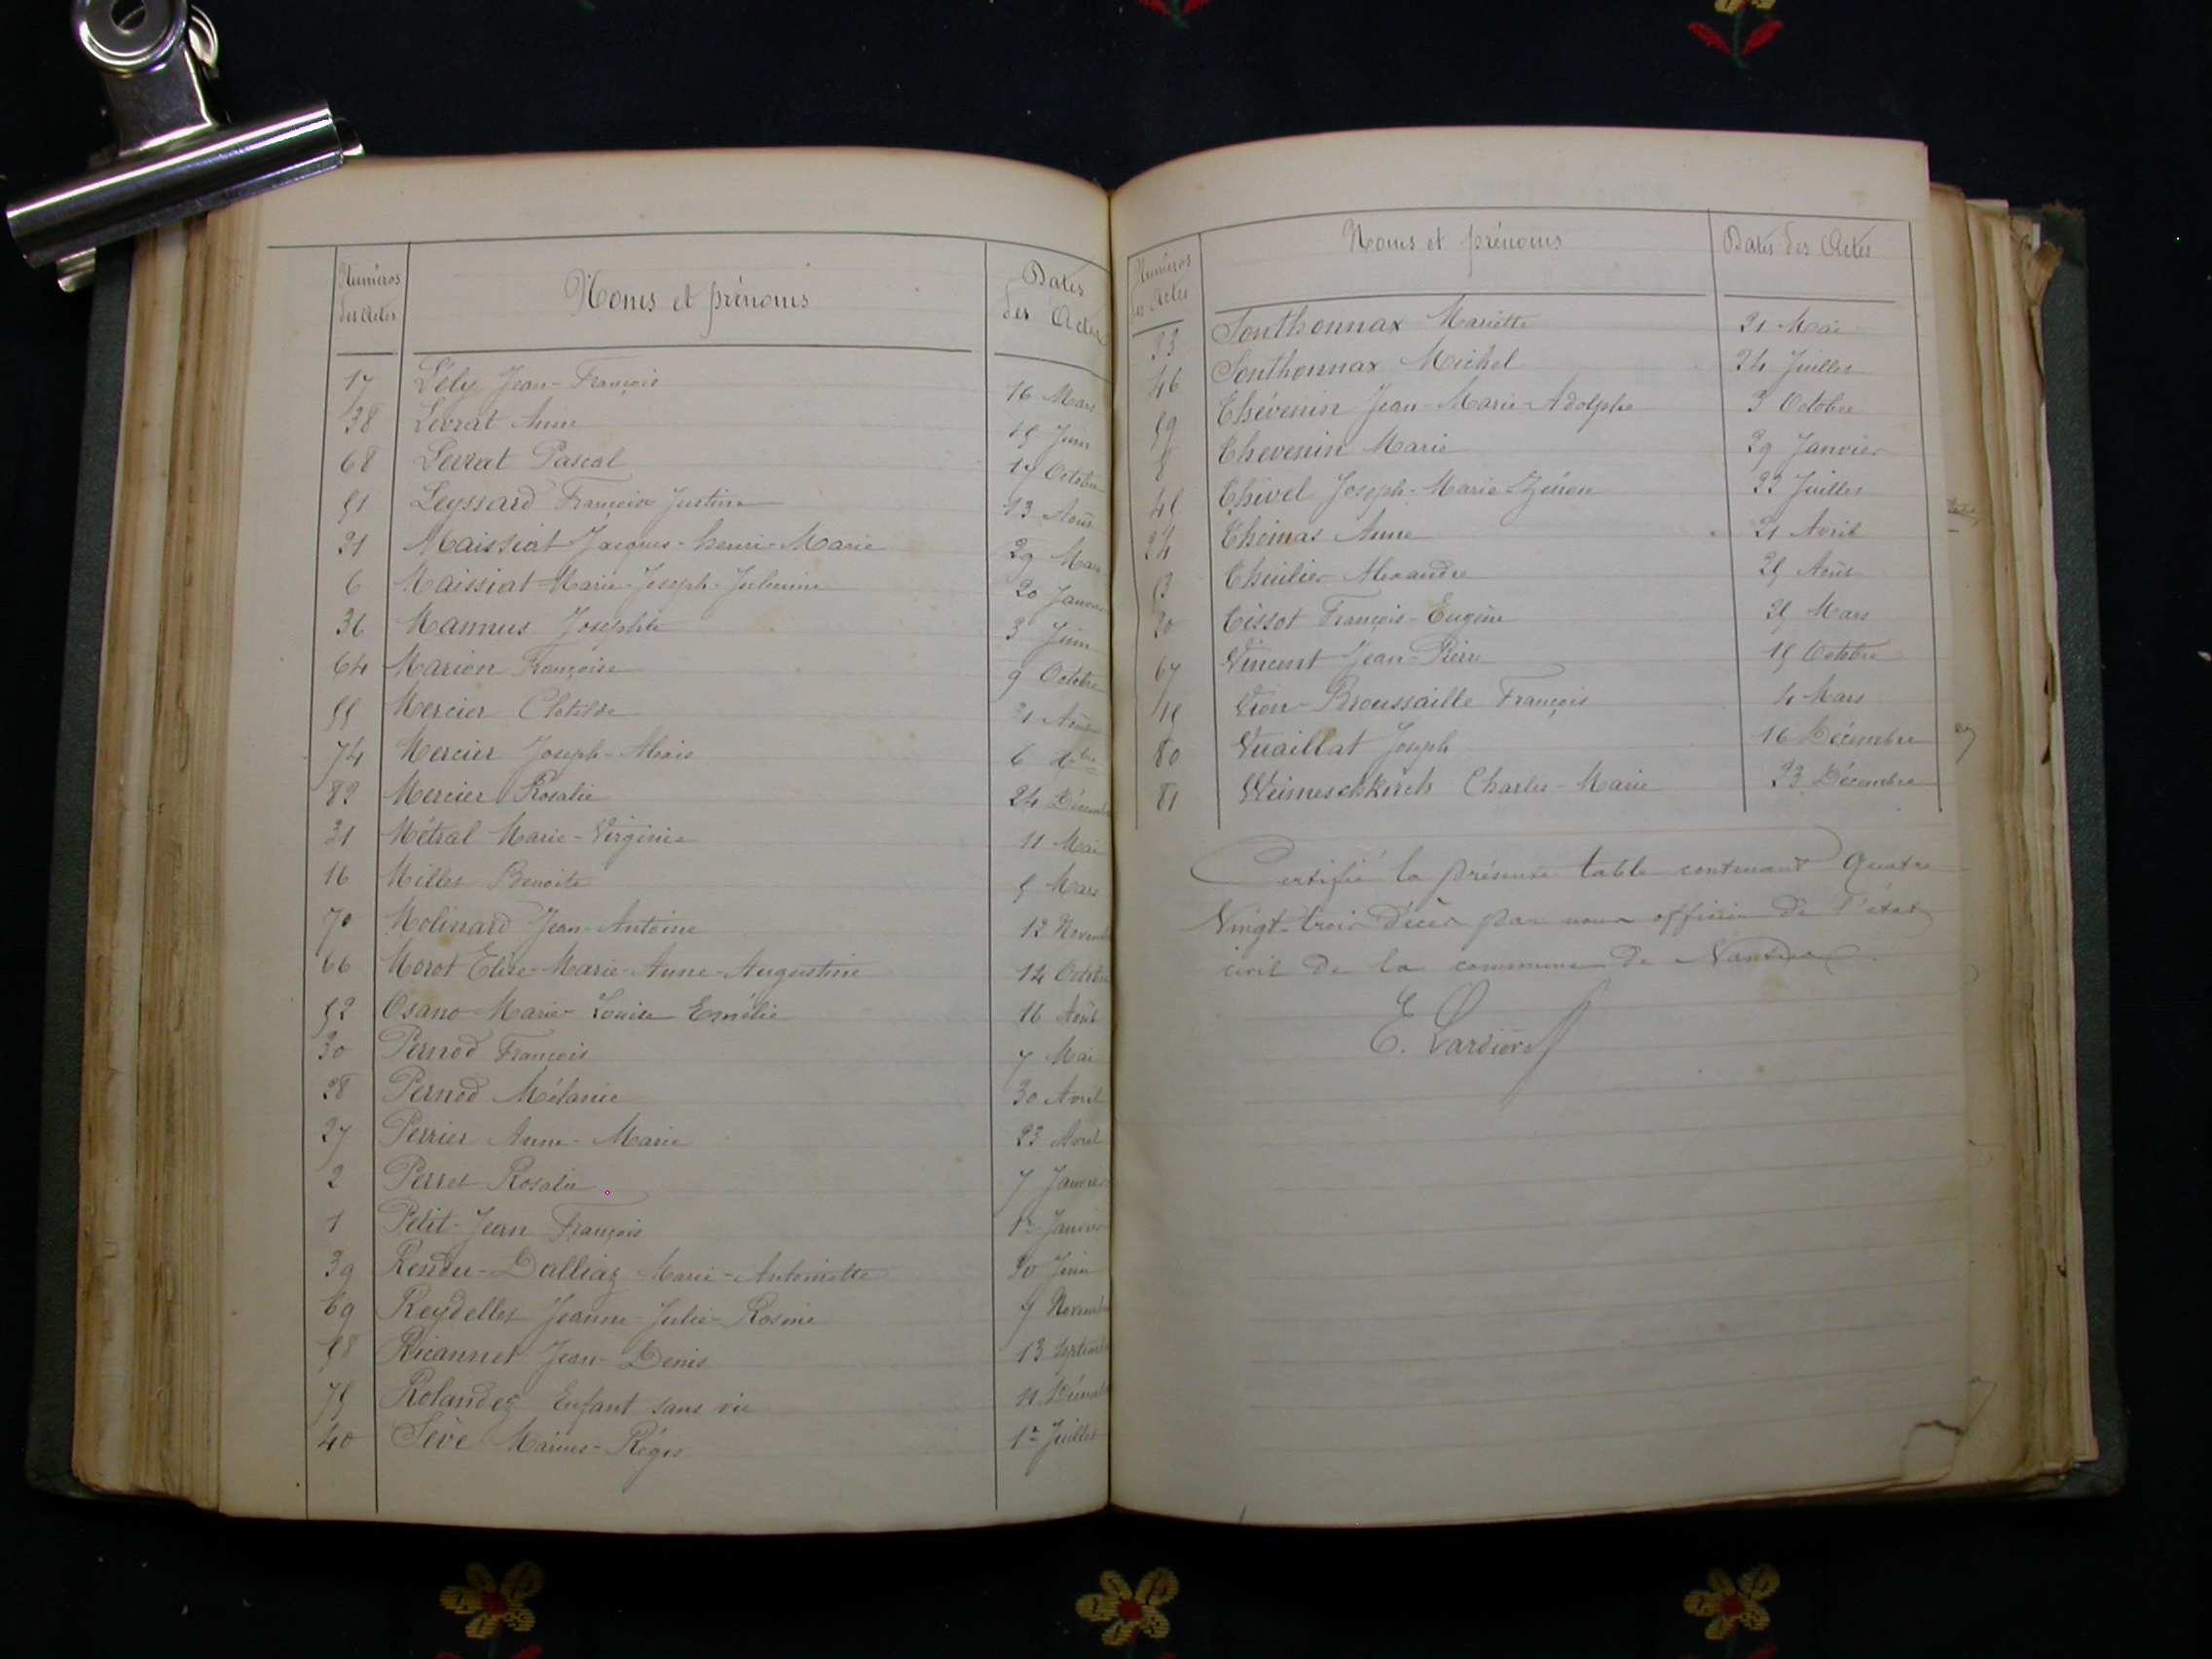 Numéros des Actes | Noms et prénoms | Dates des Actes
17 Lély Jean-François 16 Mars
38 Levrat Anne 15 Juin
68 Levrat Pascal 17 Octobre
51 Leyssard Françoise Justine 13 Août
21 Maissiat Jacques-henri-Marie 29 Mars
6 Maissiat Marie-Joseph-Julienne 20 Janvier
36 Mannus Josephte 3 Juin
64 Marion Françoise 9 Octobre
55 Mercier Clotilde 21 Août
74 Mercier Joseph-Alexis 6 Xbre
82 Mercier Rosalie 24 Décembre
31 Métral Marie-Virginie 11 Mai
16 Millet Benoite 5 Mars
70 Molinard Jean-Antoine 12 Novembre
66 Morot Elise-Marie-Anne-Augustine 14 Octobre
52 Osano Marie-Louise Emélie 16 Août
30 Pernod François 7 Mai
28 Pernod Mélanie 30 Avril
27 Perrier Anne-Marie 23 Avril
2 Perret Rosalie 7 Janvier
1 Petit-Jean François 1er Janvier
39 Rendu-Dalliaz Marie-Antoinette 20 Juin
69 Reydellet Jeanne-Julie-Rosine 7 Novembre
58 Ricannet Jean-Denis 13 Septembre
75 Rolandez Enfant sans vie 11 Décembre
40 Sève Marius-Régis 1er Juillet
Numéros des Actes | Noms et prénoms | Dates des Actes
33 Sonthonnax Mariette 21 Mai
46 Sonthonnax Michel 24 Juillet
59 Thévenin Jean-Marie-Adolphe 3 Octobre
8 Thevenin Marie 29 Janvier
45 Thivel Joseph-Marie-Zénon 23 Juillet
24 Thomas Anne 21 Avril
53 Alexandre 25 Août
20 Tissot François-Eugène 25 Mars
67 Vincent Jean-Pierre 15 Octobre
15 Vion-Broussaille François 4 Mars
80 Vuaillat Joseph 16 Décembre
81 Weimeschkirch Charles-Marie 23 Décembre
Certifié la présente table contenant Quatre
Vingt-trois décès par nous officier de l'état
civil de la commune de Nantua.
E. Lardière